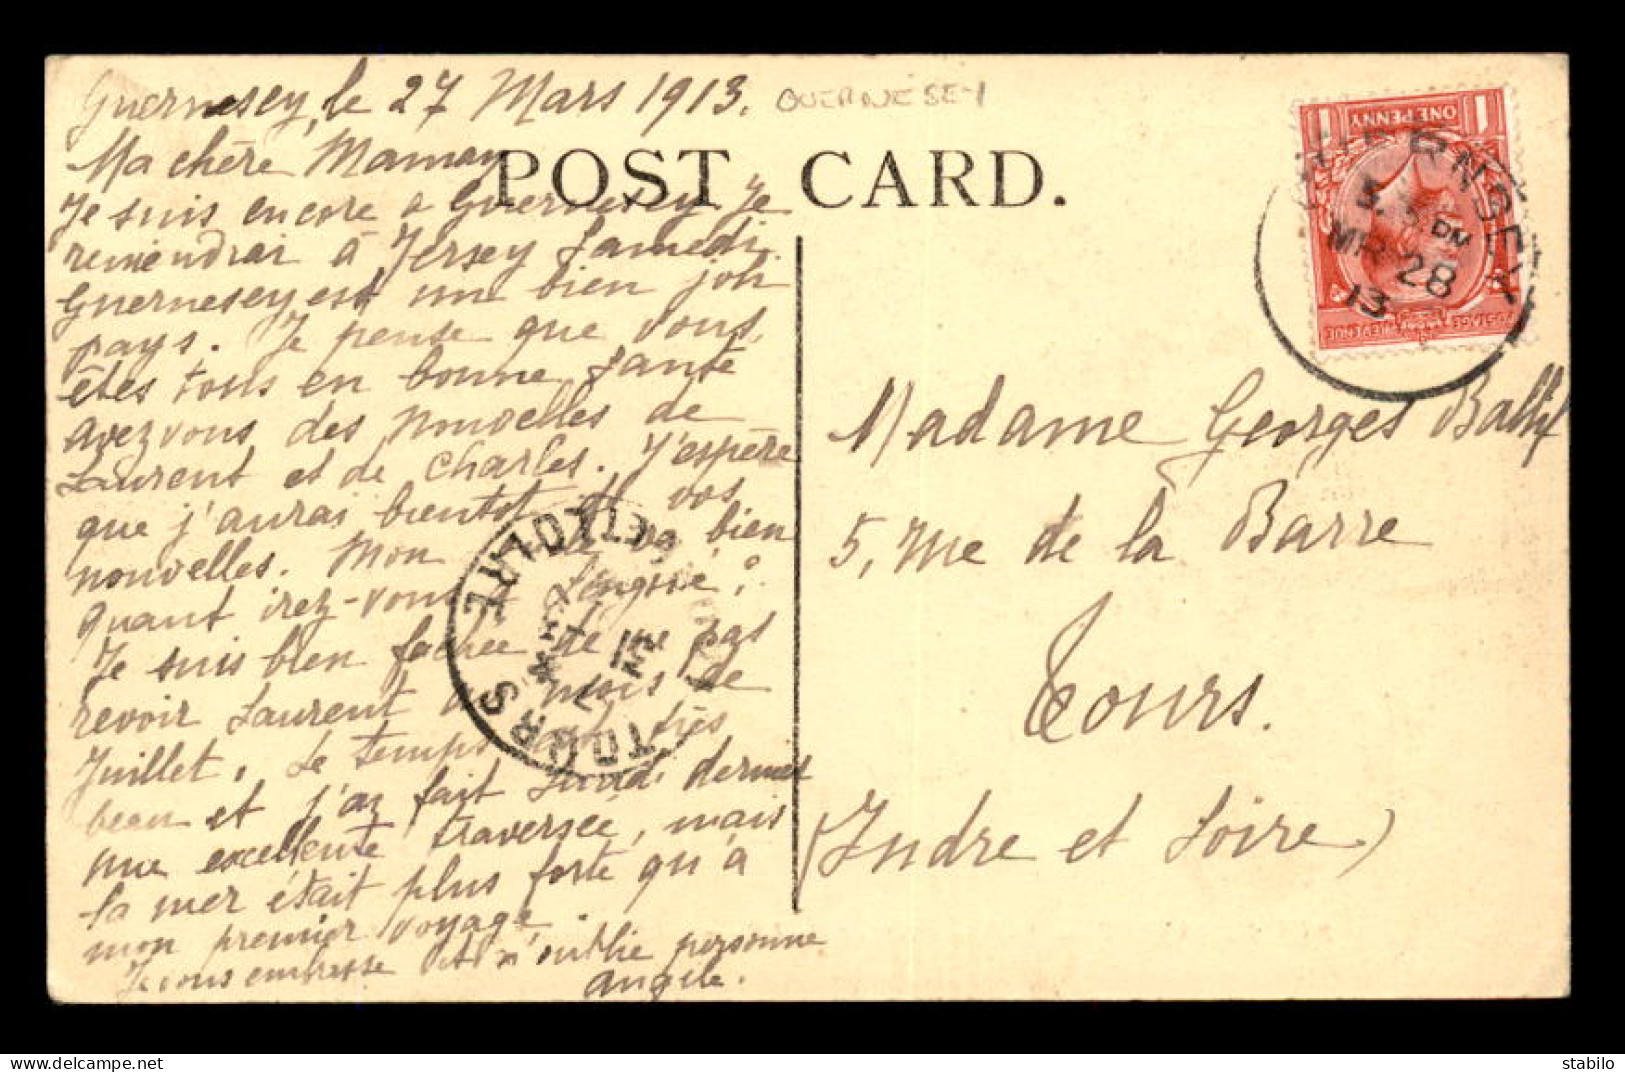 Guernesey, le 27 Mars 1913.
GUERNESEY
Ma chère Maman
POST CARD.
Je suis encore a Guernesey Je
reviendrai à Jersey Samedi.
Guernesey est un bien joli
pays. Je pense que vous
êtes tous en bonne santé
avez vous des nouvelles de
Laurent et de Charles. J'espère
que j'aurai bientot de vos
nouvelles. Mon va bien
Quant irez-vous
Je suis bien fachée de ne pas
revoir Laurent au mois de
Juillet. Le temps est très
beau et j'ai fait Lundi dernier
une excellente traversée, mais
la mer était plus forte qu'à
mon premier voyage
Je vous embrasse et n'oublie personne
Angèle.
1 ONE PENNY 1
POSTAGE REVENUE
GUERNSEY
PM
MR 28
13
Madame Georges
5, rue de la Barre
Tours.
(Indre et Loire)
TOURS